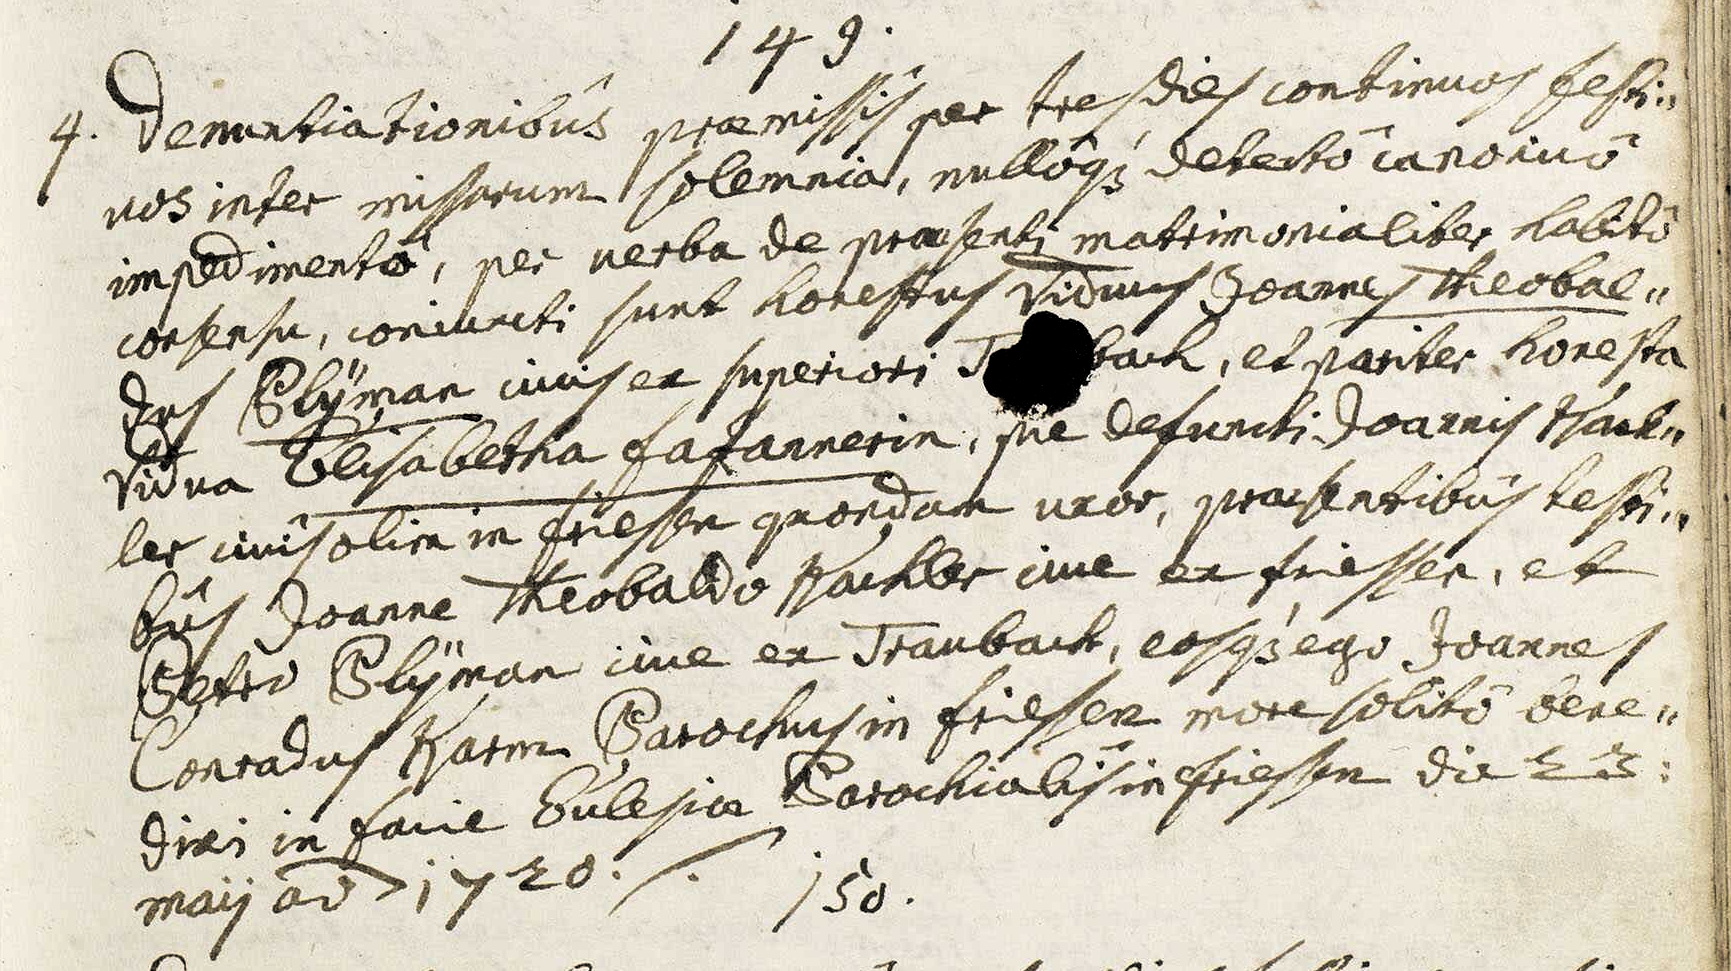 149.
4. Denuntiationibus præmissis per tres dies continuos festi„
vos inter missarum solemnia, nullôq3 detectô canonicô
impedimentô, per verba de præsenti matrimonialiter habitô
consensu, coniuncti sunt honestus Viduus Joannes Theobal„
dus Plÿman civis ex superiori T bach, et pariter honesta
Vidua Elisabetha fafannerin, pie defuncti Joannis Kach„
ler civis olim in friessen quondam uxor, præsentibus testi„
bus Joanne Theobaldo Kachler cive ex friessen, et
Petro Plÿman cive ex Traubach, eosq3 ego Joannes
Conradus Karm Parochus in friessen more solitô bene„
dixi in facie Ecclesiæ Parochialis in friessen die 23:
maij aõ 1720.
150.